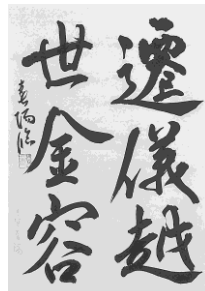 遷儀越
世金容